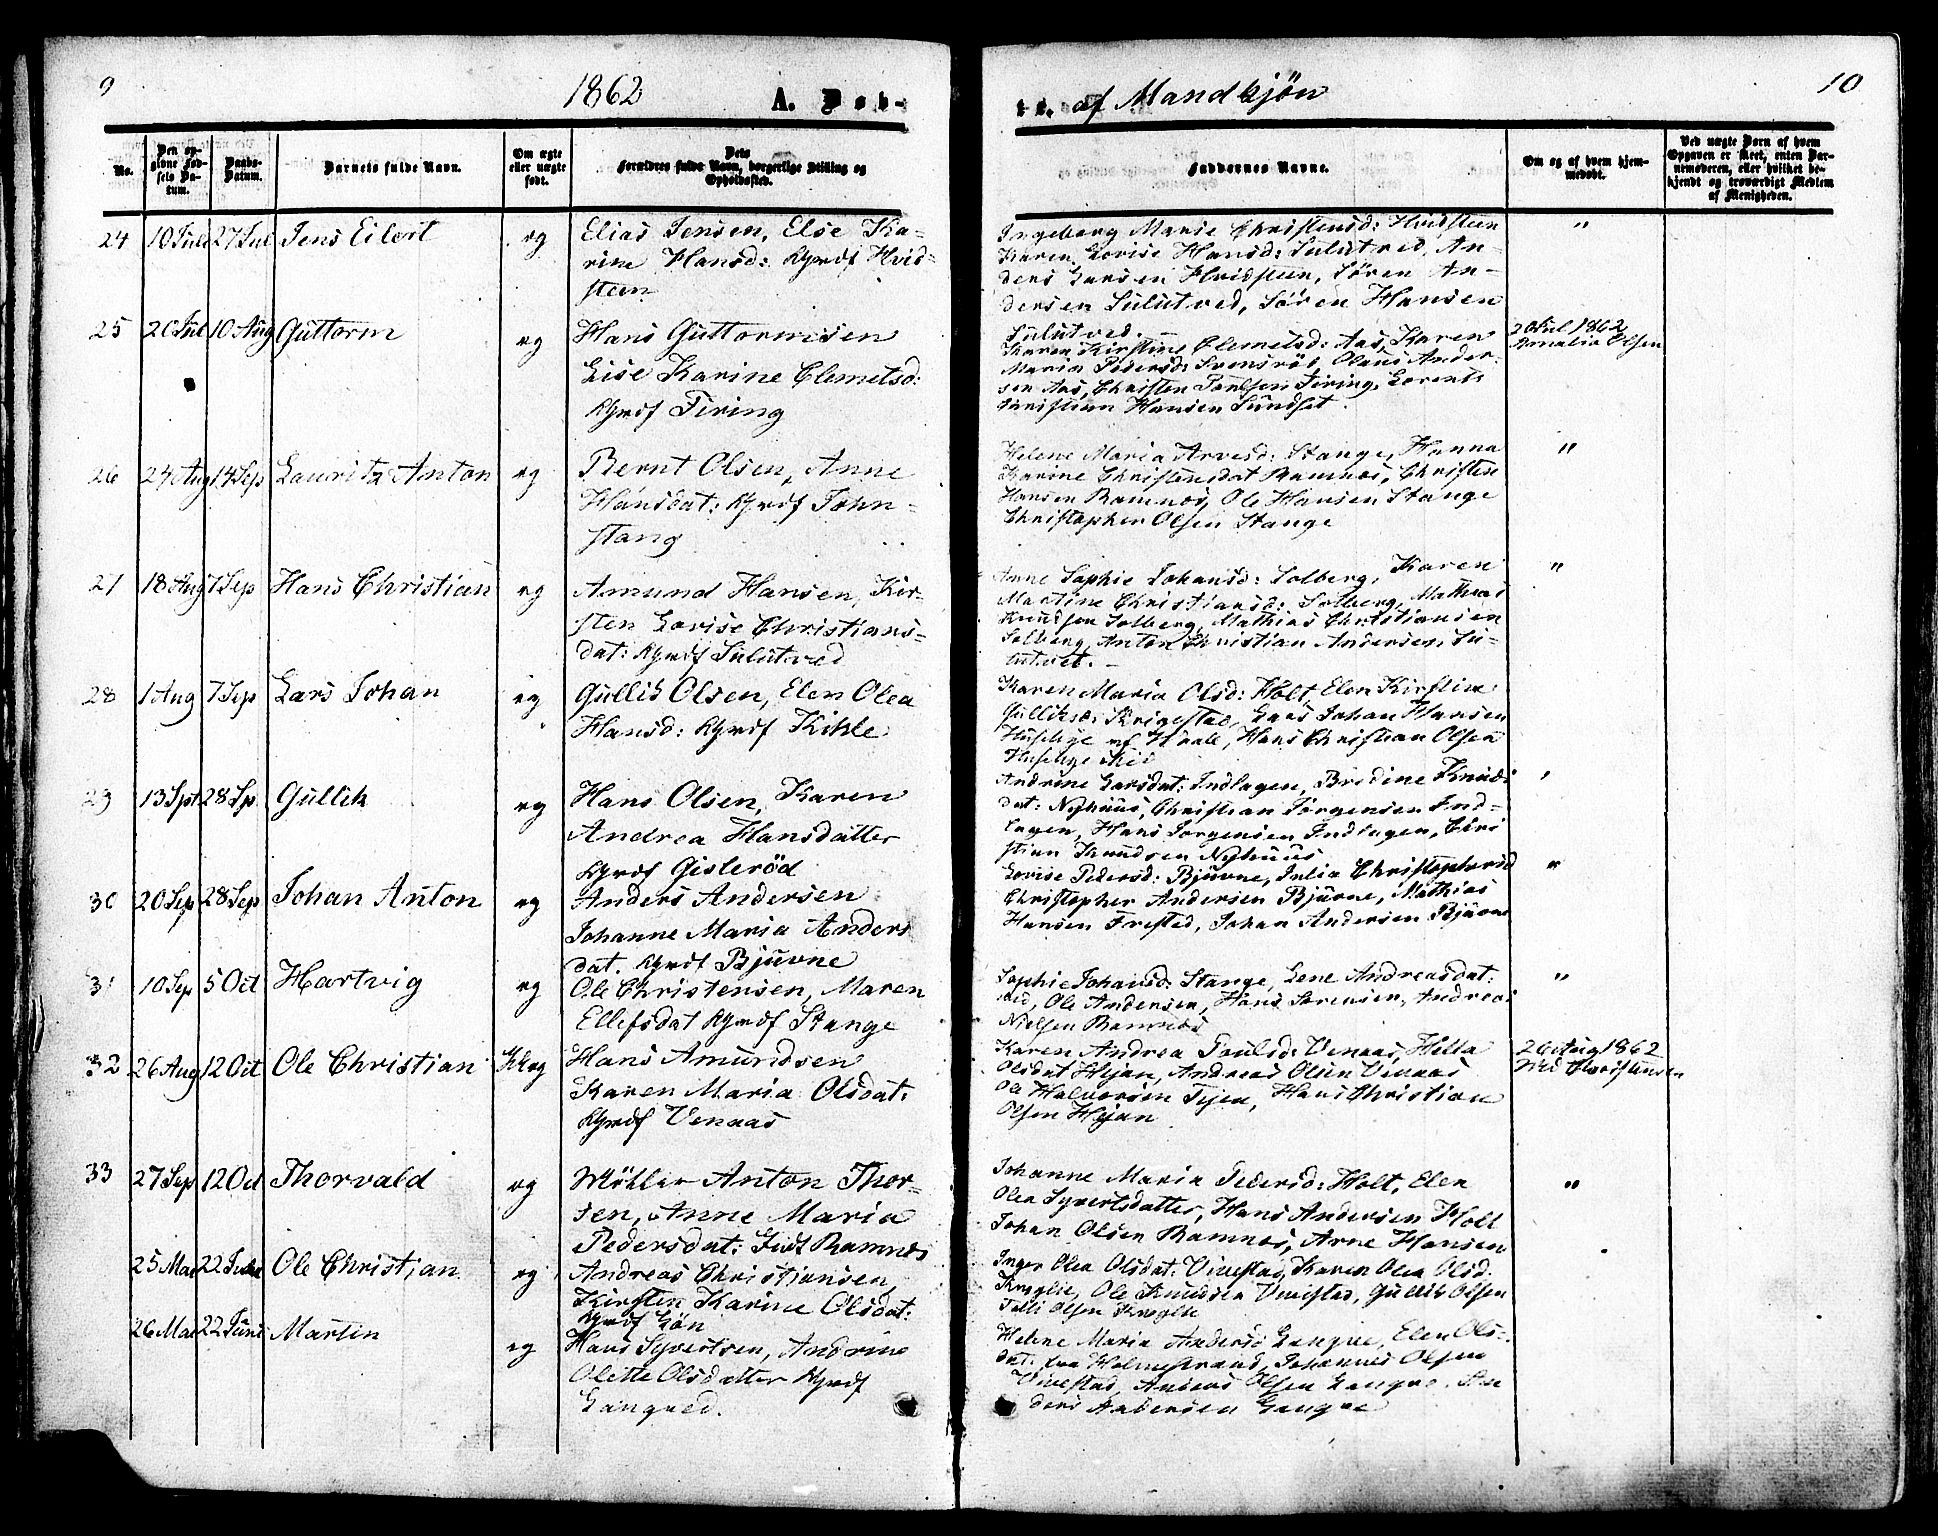 9 1862 A. Døb-
te. af Mandkjøn 10
No. Den op-givne Fød-sels Da-tum. Daabs-Datum. Barnets fulde Navn. Om ægte eller uægte født. Dets Forældres fulde Navn, borgerlige Stilling og Opholdssted.
Faddernes Navne. Om og af hvem hjem-medøbt. Ved uægte Barn af hvem Opgaven er skeet, enten Bar-nemoderen, eller hvilket be-kjendt og troværdigt Medlem af Menigheden.
24 10 Juli 27 Jul Jens Eilert eg Elias Jensen, Else Ka-
rine Hansd: Gmdf Hvid-
steen
Ingeborg Marie Christensd: Hvidsteen
Karen Lovise Hansd: Sulutved, An-
ders Larsen Hvidsteen, Søren An-
dersen Sulutved, Søren Hansen
Sulutved. "
25 20 Jul 10 Aug Guttorm eg Hans Guttormsen
Lise Karine Clemetsd:
Gmdf Firing
Karen Kirstine Clemetsd: Aas, Karen
Maria Pedersd: Svensrød, Olaus Ander-
sen Aas, Christen Paulsen Firing, Lorents
Christian Hansen Sundset.
20 Jul 1862
Amalia Olsen
26 24 Aug 14 Sep Lauritz Anton eg Bernt Olsen, Anne
Hansdat: Gmdf John-
stang
Helene Maria Arvesd: Stange, Hanna
Karine Christensdat Ramnes, Christen
Hansen Ramnes, Ole Hansen Stange
Christopher Olsen Stange "
27 18 Aug 7 Sep Hans Christian eg Amund Hansen, Kir-
sten Lovise Christians-
dat: Gmdf Sulutved
Anne Sophie Johansd: Solberg, Karen
Martine Christiansd: Solberg, Mathias
Knudsen Solberg, Mathias Christiansen
Solberg, Anton Christian Andersen, Su-
lutvet. "
28 1 Aug 7 Sep Lars Johan eg Gullik Olsen, Elen Olea
Hansd: Gmdf Kihle
Karen Maria Olsd: Holt, Elen Kirstine
Gulliksd: Lars Johan Hansen
Husebye Hans Christian Olsen
Husebye
29 13 Spt 28 Sp. Gullik eg Hans Olsen, Karen
Andrea Hansdatter
Gmdf Gislerød
Andrine Larsdat: Indlagen, Bredine Knuds
dat: Nyhuus, Christian Jørgensen Ind-
lagen, Hans Jørgensen Indlagen, Chri
stian Knudsen Nyhuus
30 20 Sep 28 Sep Johan Anton eg Anders Andersen
Johanne Maria Anders
dat. Gmdf Bjuvne
Lovise Pedersd: Bjuvne, Julia Christophersd
Christopher Andersen Bjuvne, Mathias
Hansen Frested, Johan Andersen Bjuvne "
31 10 Sep 5 Oct Hartvig eg Ole Christensen, Maren
Ellefsdat Gmdf Stange
Sophie Johansd: Stange, Lene Andreasdat:
Ole Andersen, Hans Sørensen, Andreas
Nielsen Ramnes "
32 26 Aug 12 Oct Ole Christian eg Hans Amundsen
Karen Maria Olsdat:
Gmdf Venaas
Karen Andrea Poulsd: Venaas, Hella
Olsdat Hijan, Andreas Olsen Venaas
Ole Halvorsen Hans Christian
Olsen Hijan
26 Aug 1862
Christensen
33 27 Sep 12 Oct Thorvald eg Møller Anton Thor-
sen, Anne Maria
Pedersdat: Ramnes
Johanne Maria Pedersd: Holt, Elen
Olea Syvertsdatter, Hans Andersen Holt
Johan Olsen Ramnes, Arne Hansen "
25 Mai 22 Juni Ole Christian eg Andreas Christiansen,
Kirsten Karine Olsdat:
Gmdf Løn
Inger Olea Olsdat: Vivestad, Karen Olea Olsd.
Kroglie, Ole Knudsen Vivestad, Gullik Olsen
Olsen Kroglie
26 Mai 22 Juni Martin eg Hans Syvertsen, Andrine
Olette Olsdatter Gmdf
Langved.
Helene Maria Andersd Langve, Elen Ols-
dat: fra Holmestrand, Johannes Olsen
Vivestad, Anders Olsen Langve, An
ders Andersen Langve